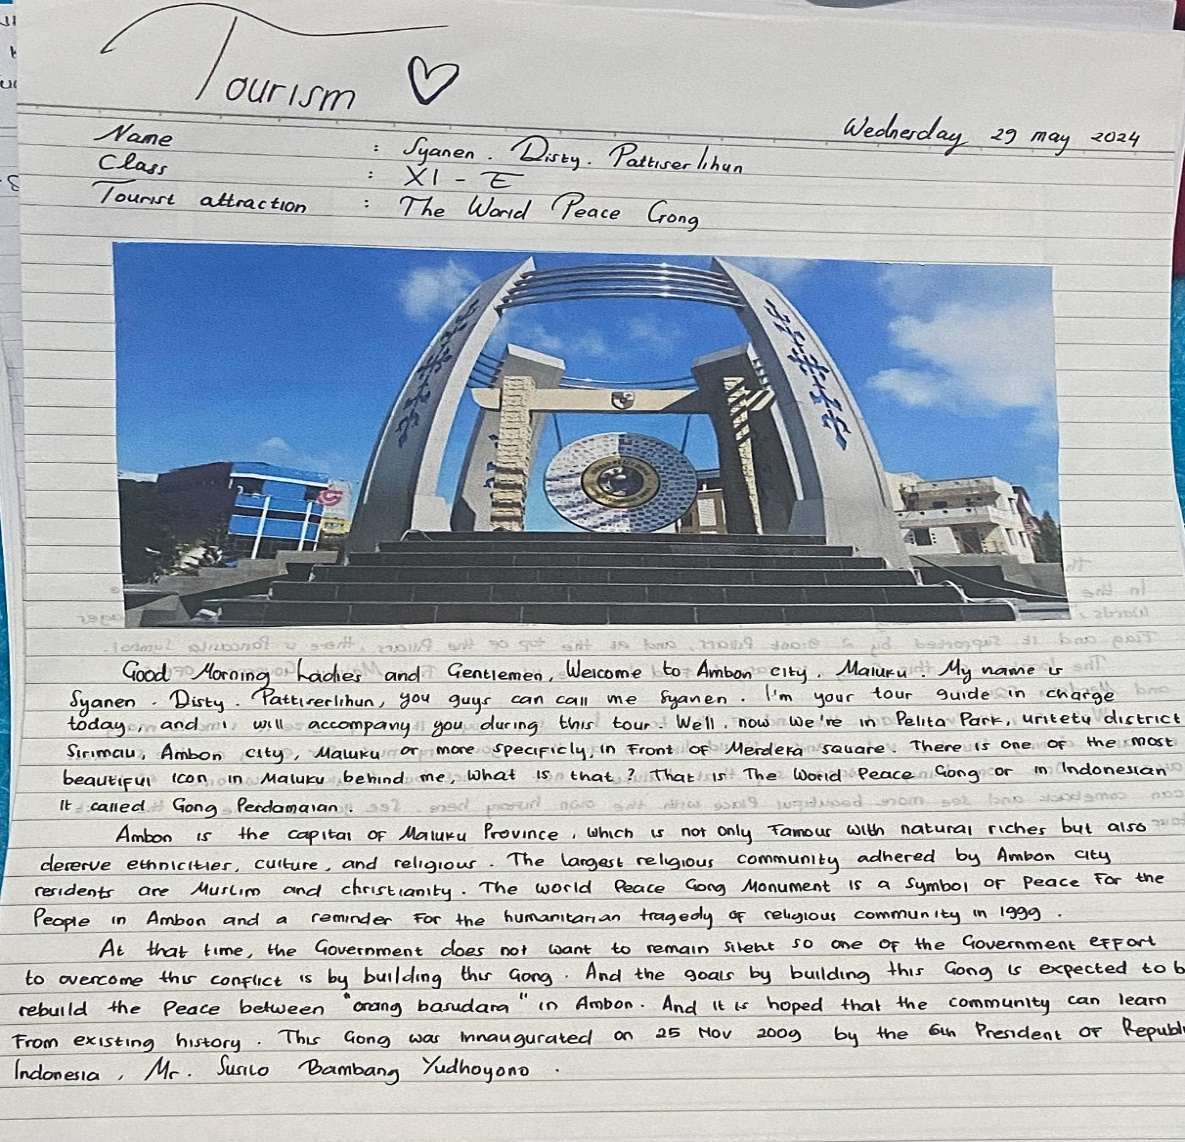 Tourism ♡
Wednesday 29 may 2024
Name : Syanen . Disty. Pattiserlihun
Class : XI - E
Tourist attraction : The World Peace Gong
Good Morning Ladies and Gentlemen, Welcome to Ambon city, Maluku! My name is
Syanen . Disty . Pattiserlihun, you guys can call me Syanen . I'm your tour guide in charge
today and i will accompany you during this tour. Well, now we're in Pelita Park, uritetu district
Sirimau, Ambon city, Maluku or more specificly, in front of Merdeka square. There is one of the most
beautiful icon in Maluku behind me, what is that? That is The World Peace Gong or in Indonesian
it called Gong Perdamaian .
Ambon is the capital of Maluku Province, which is not only famous with natural riches but also
deserve ethnicities, culture, and religious . The largest religious community adhered by Ambon city
residents are Muslim and christianity. The world Peace Gong Monument is a symbol of peace for the
People in Ambon and a reminder for the humanitarian tragedy of religious community in 1999 .
At that time, the Government does not want to remain silent so one of the Government effort
to overcome this conflict is by building this Gong . And the goals by building this Gong is expected to b
rebuild the Peace between "orang basudara" in Ambon. And it is hoped that the community can learn
From existing history . This Gong was innaugurated on 25 Nov 2009 by the 6th President of Republi
Indonesia, Mr. Susilo Bambang Yudhoyono .